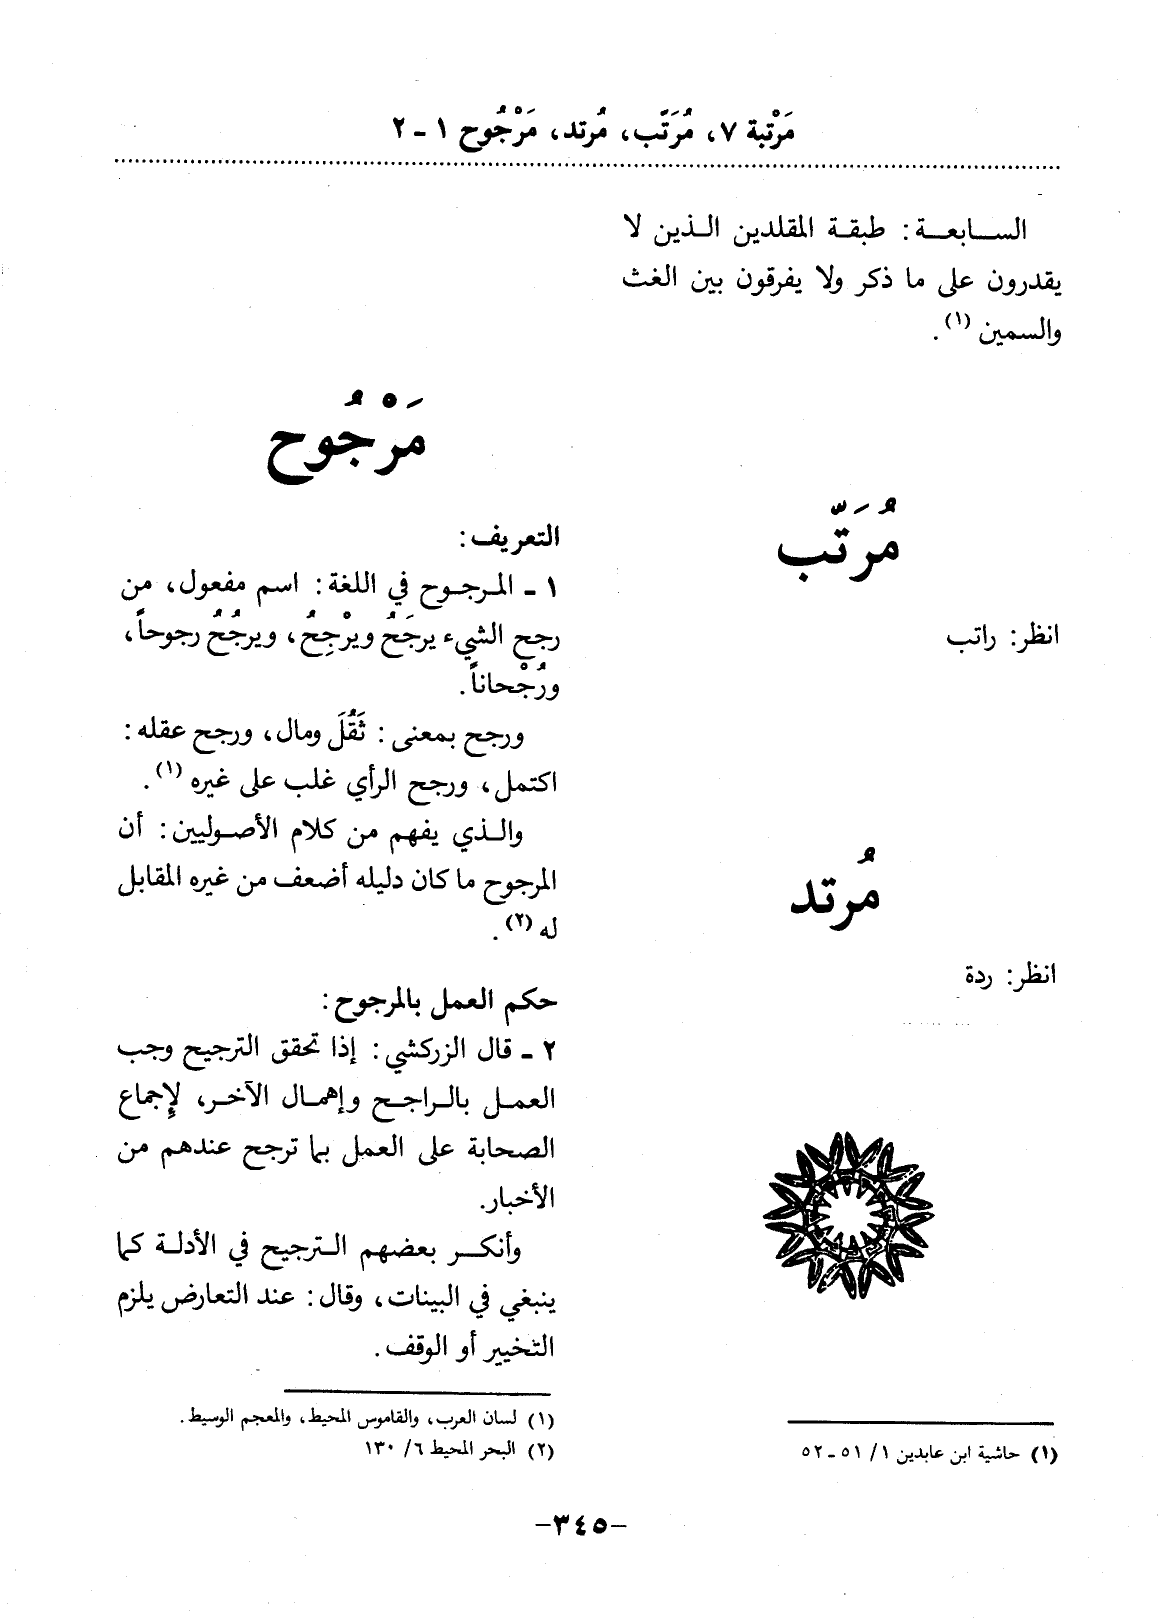 مَرْتبة ٧، مُرَتَّب، مُرتد، مَرْجُوح ١ ـ ٢
السابعة: طبقة المقلدين الذين لا
يقدرون على ما ذكر ولا يفرقون بين الغث
والسمين (١).
مُرَتَّب
انظر: راتب
مُرتد
انظر: ردة
(١) حاشية ابن عابدين ١/ ٥١ ـ ٥٢
مَرْجُوح
التعريف:
١ ـ المرجوح في اللغة: اسم مفعول، من
رجح الشيء يرجَحُ ويرْجِحُ، ويرجُحُ رجوحاً،
ورُجْحاناً.
ورجح بمعنى: ثَقُلَ ومال، ورجح عقله:
اكتمل، ورجح الرأي غلب على غيره (١).
والذي يفهم من كلام الأصوليين: أن
المرجوح ما كان دليله أضعف من غيره المقابل
له (٢).
حكم العمل بالمرجوح:
٢ ـ قال الزركشي: إذا تحقق الترجيح وجب
العمل بالراجح وإهمال الآخر، لإجماع
الصحابة على العمل بما ترجح عندهم من
الأخبار.
وأنكر بعضهم الترجيح في الأدلة كما
ينبغي في البينات، وقال: عند التعارض يلزم
التخيير أو الوقف.
(١) لسان العرب، والقاموس المحيط، والمعجم الوسيط.
(٢) البحر المحيط ٦/ ١٣٠
-٣٤٥-